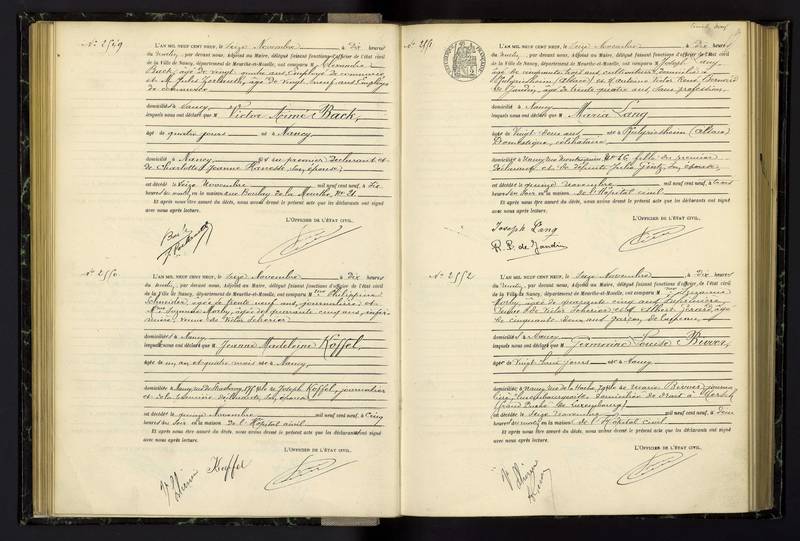 N° 2549
L'AN MIL NEUF CENT NEUF, le Seize Novembre à Dix heures
du matin, par devant nous, Adjoint au Maire, délégué faisant fonctions d'officier de l'état civil
de la Ville de Nancy, département de Meurthe-et-Moselle, ont comparu M Alexandre
Back, âgé de vingt quatre ans, Employé de commerce
et M Jules âgé de vingt neuf ans, Employé
de commerce
domiciliés à Nancy
lesquels nous ont déclaré que M Victor Aimé Back
âgé de quatre jours né à Nancy
domicilié à Nancy, du premier Déclarant et
de Charlotte Jeanne son épouse
est décédé le Seize Novembre mil neuf cent neuf, à
heures du matin, en la maison rue de la N° 21
Et après nous être assuré du décès, nous avons dressé le présent acte que les déclarants ont signé
avec nous après lecture.
L'OFFICIER DE L'ÉTAT CIVIL.
N° 2550
L'AN MIL NEUF CENT NEUF, le Seize Novembre à Dix heures
du matin, par devant nous, Adjoint au Maire, délégué faisant fonctions d'officier de l'état civil
de la Ville de Nancy, département de Meurthe-et-Moselle, ont comparu M Philippine
Schneider, âgée de trente neuf ans, journalière et
Mme Suzanne Morby, âgée de quarante cinq ans, infir-
mière, veuve de Victor Scherier
domiciliés à Nancy
lesquels nous ont déclaré que M Jeanne Madeleine Koffel,
âgée de un an et quatre mois née à Nancy,
domiciliée à Nancy, rue de Strasbourg, 175 fille de Joseph Koffel, journalier
et de son épouse
est décédée le quinze Novembre mil neuf cent neuf, à Cinq
heures du soir en la maison de l'Hôpital civil
Et après nous être assuré du décès, nous avons dressé le présent acte que les déclarants ont signé
avec nous après lecture.
L'OFFICIER DE L'ÉTAT CIVIL.
Koffel
L'AN MIL NEUF CENT NEUF, le Seize Novembre à Dix heures
du matin, par devant nous, Adjoint au Maire, délégué faisant fonctions d'officier de l'état civil
de la Ville de Nancy, département de Meurthe-et-Moselle, ont comparu M Joseph Lang,
âgé de cinquante trois ans, cultivateur, domicilié à
Pfulgriesheim (Alsace) et M Victor René
de Jandin, âgé de trente quatre ans, sans profession,
domicilié à Nancy
lesquels nous ont déclaré que M Maria Lang
âgée de Vingt deux ans née à Pfulgriesheim (Alsace)
Domestique, célibataire
domiciliée à Nancy, rue N° 16 fille du premier
Déclarant et de défunte Julie son épouse
est décédée le quinze Novembre mil neuf cent neuf, à trois
heures du soir en la maison de l'Hôpital civil
Et après nous être assuré du décès, nous avons dressé le présent acte que les déclarants ont signé
avec nous après lecture.
L'OFFICIER DE L'ÉTAT CIVIL.
Joseph Lang
R. V. de Jandin
N° 2552
L'AN MIL NEUF CENT NEUF, le Seize Novembre à Dix heures
du matin, par devant nous, Adjoint au Maire, délégué faisant fonctions d'officier de l'état civil
de la Ville de Nancy, département de Meurthe-et-Moselle, ont comparu Mme Suzanne
Morby, âgée de quarante cinq ans, infirmière,
veuve de Victor Scherier et M Albert Gérard, âgé
de cinquante deux ans, garçon de
domiciliés à Nancy
lesquels nous ont déclaré que M Germaine Louise Biver,
âgée de Vingt deux jours née à Nancy
domiciliée à Nancy, rue de la Hache, 79 fille de Marie Biver, journa-
lière, Luxembourgeoise, domiciliée de droit à Mersch
(Grand Duché de Luxembourg)
est décédée le Seize Novembre mil neuf cent neuf, à deux
heures du matin, en la maison de l'Hôpital civil
Et après nous être assuré du décès, nous avons dressé le présent acte que les déclarants ont signé
avec nous après lecture.
L'OFFICIER DE L'ÉTAT CIVIL.